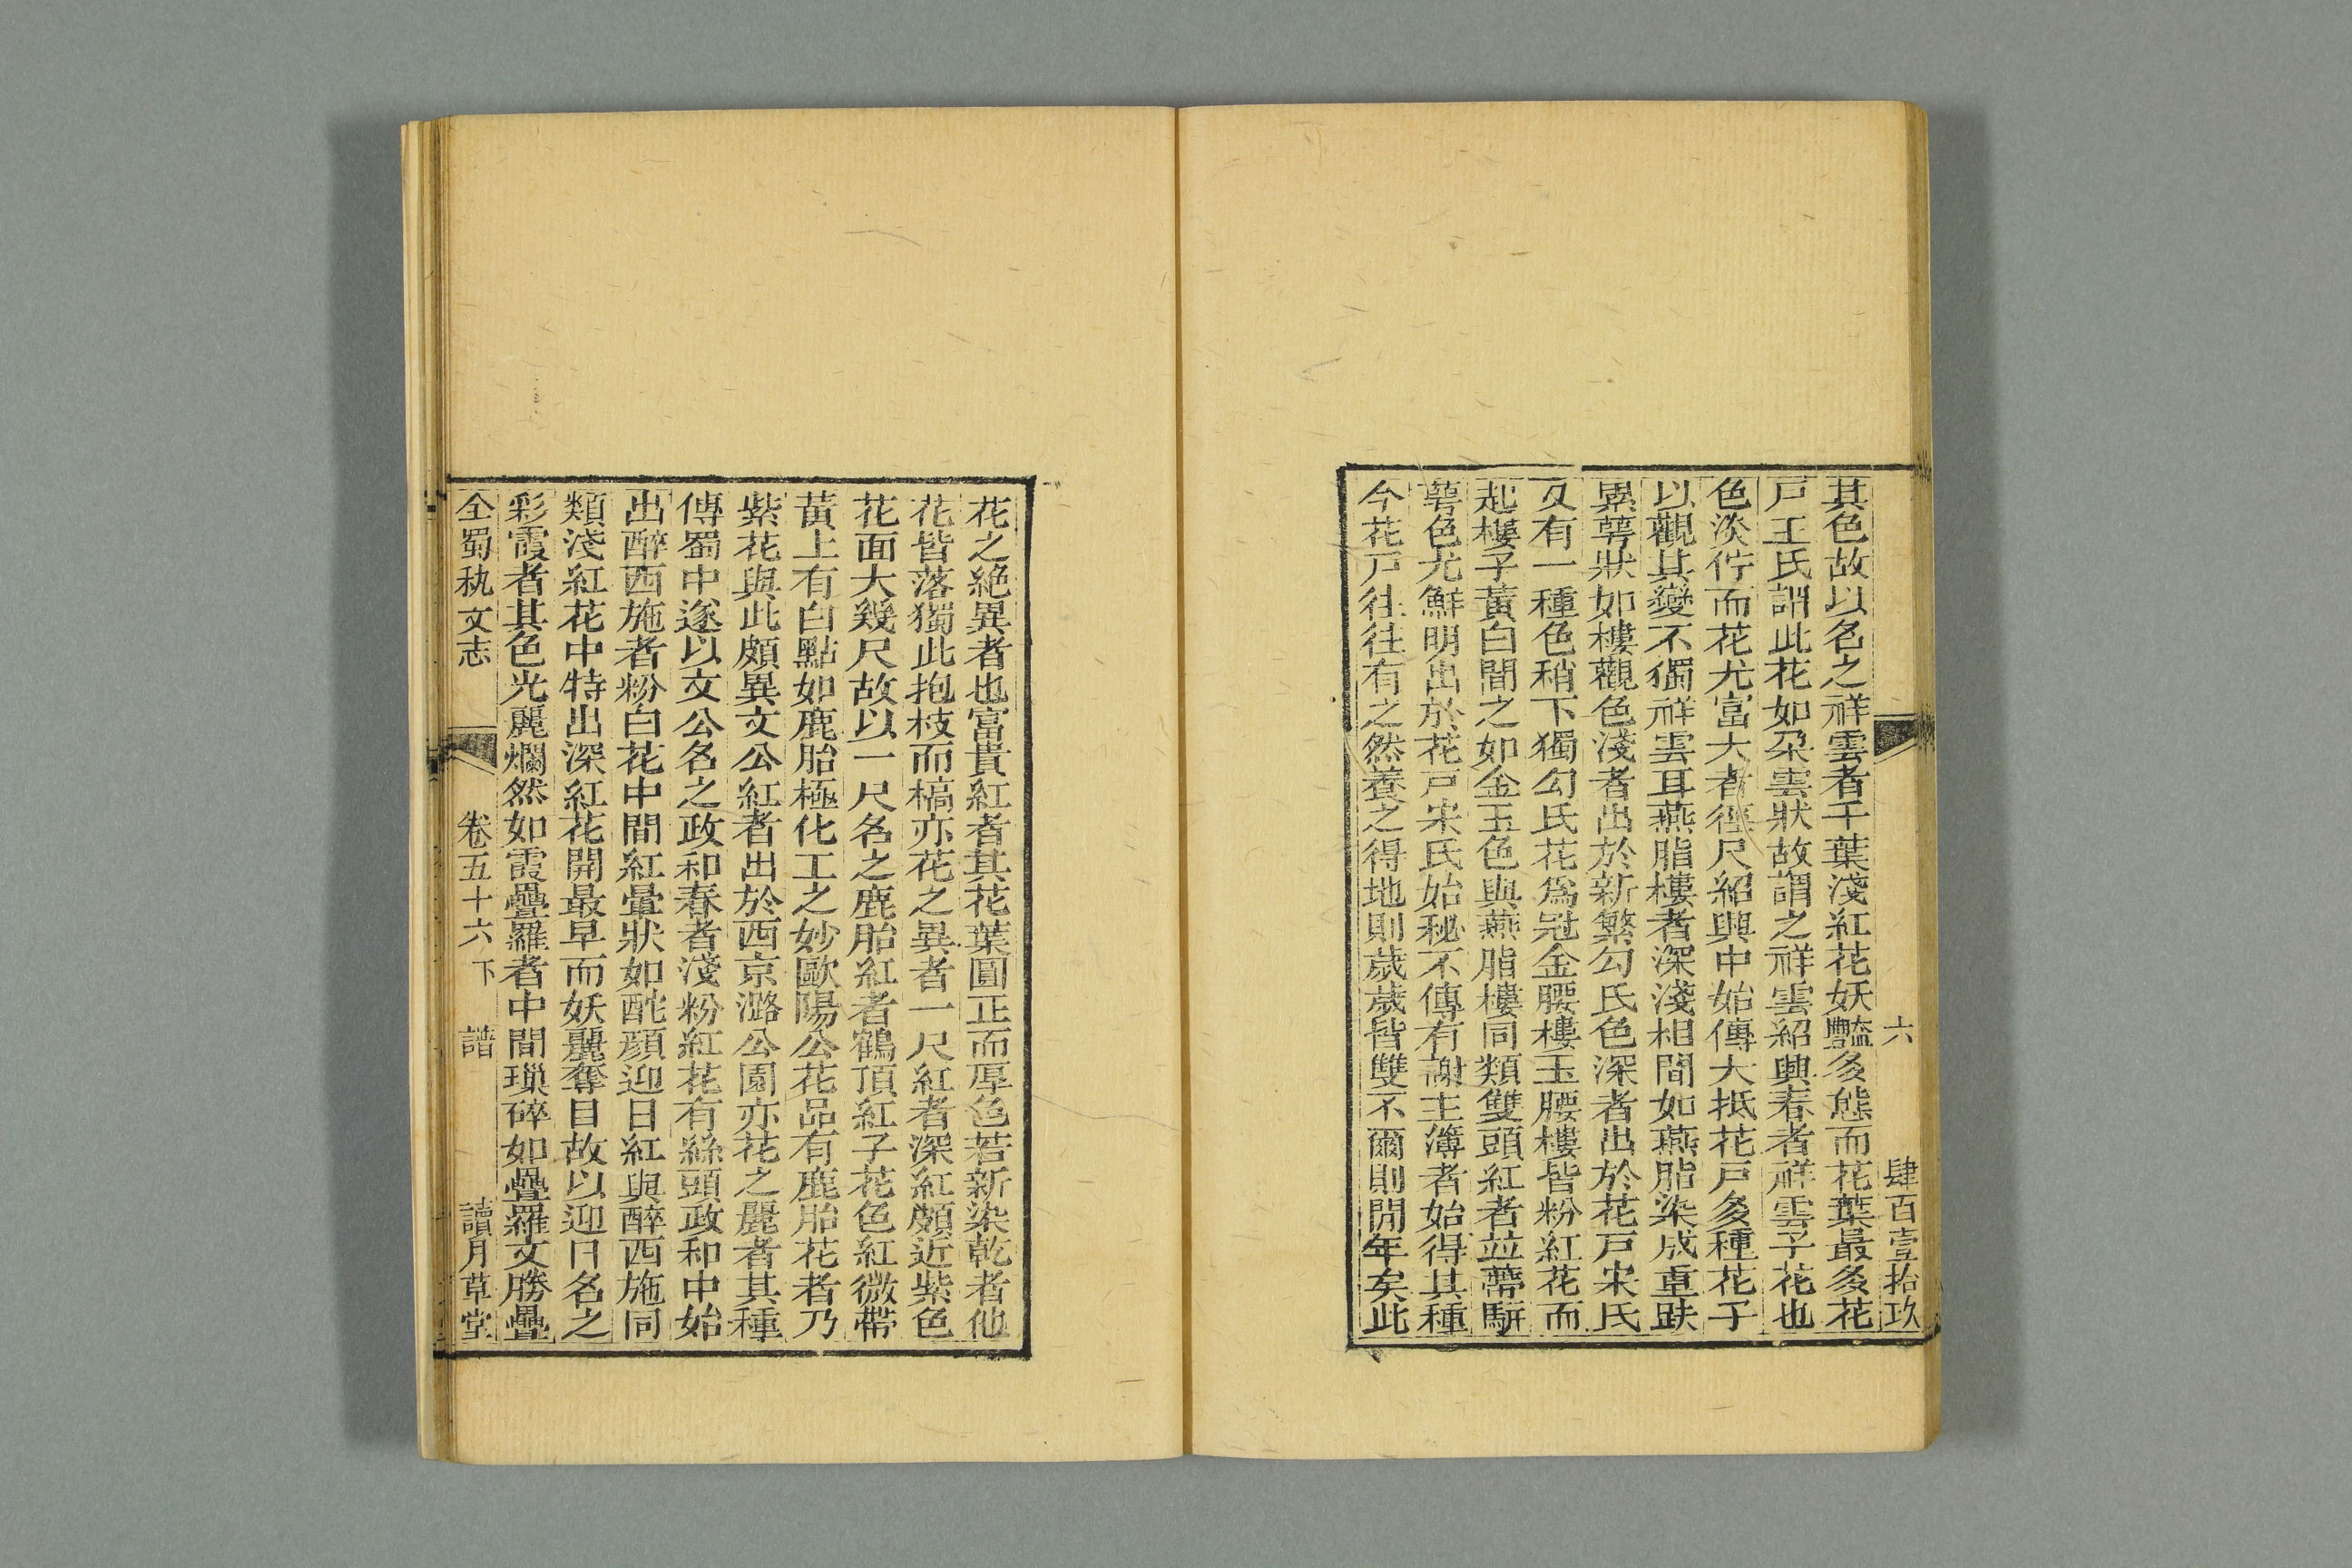 六　肆百壹拾玖
其色故以名之祥雲者千葉淺紅花妖豔多態而花葉最多花
戸王氏謂此花如朶雲狀故謂之祥雲紹興春者祥雲子花也
色淡佇而花尤富大者徑尺紹興中始傳大抵花戸多種花子
以觀其變不獨祥雲耳燕脂樓者深淺相間如燕脂染成重趺
累萼狀如樓觀色淺者出於新繁勾氏色深者出於花戸宋氏
又有一種色稍下獨勾氏花爲冠金腰樓玉腰樓皆粉紅花而
起樓子黃白間之如金玉色與燕脂樓同類雙頭紅者並蔕駢
萼色尤鮮明出於花戸宋氏始秘不傳有謝主簿者始得其種
今花戸往往有之然養之得地則歲歲皆雙不爾則間年矣此
花之絶異者也富貴紅者其花葉圓正而厚色若新染乾者他
花皆落獨此抱枝而槁亦花之異者一尺紅者深紅頗近紫色
花面大幾尺故以一尺名之鹿胎紅者鶴頂紅子花色紅微帶
黃上有白點如鹿胎極化工之妙歐陽公花品有鹿胎花者乃
紫花與此頗異文公紅者出於西京潞公園亦花之麗者其種
傳蜀中遂以文公名之政和春者淺粉紅花有絲頭政和中始
出醉西施者粉白花中間紅暈狀如酡顏迎日紅與醉西施同
類淺紅花中特出深紅花開最早而妖麗奪目故以迎日名之
彩霞者其色光麗爛然如霞疊羅者中間瑣碎如疊羅文勝疊
全蜀秇文志　卷五十六下　譜　讀月草堂